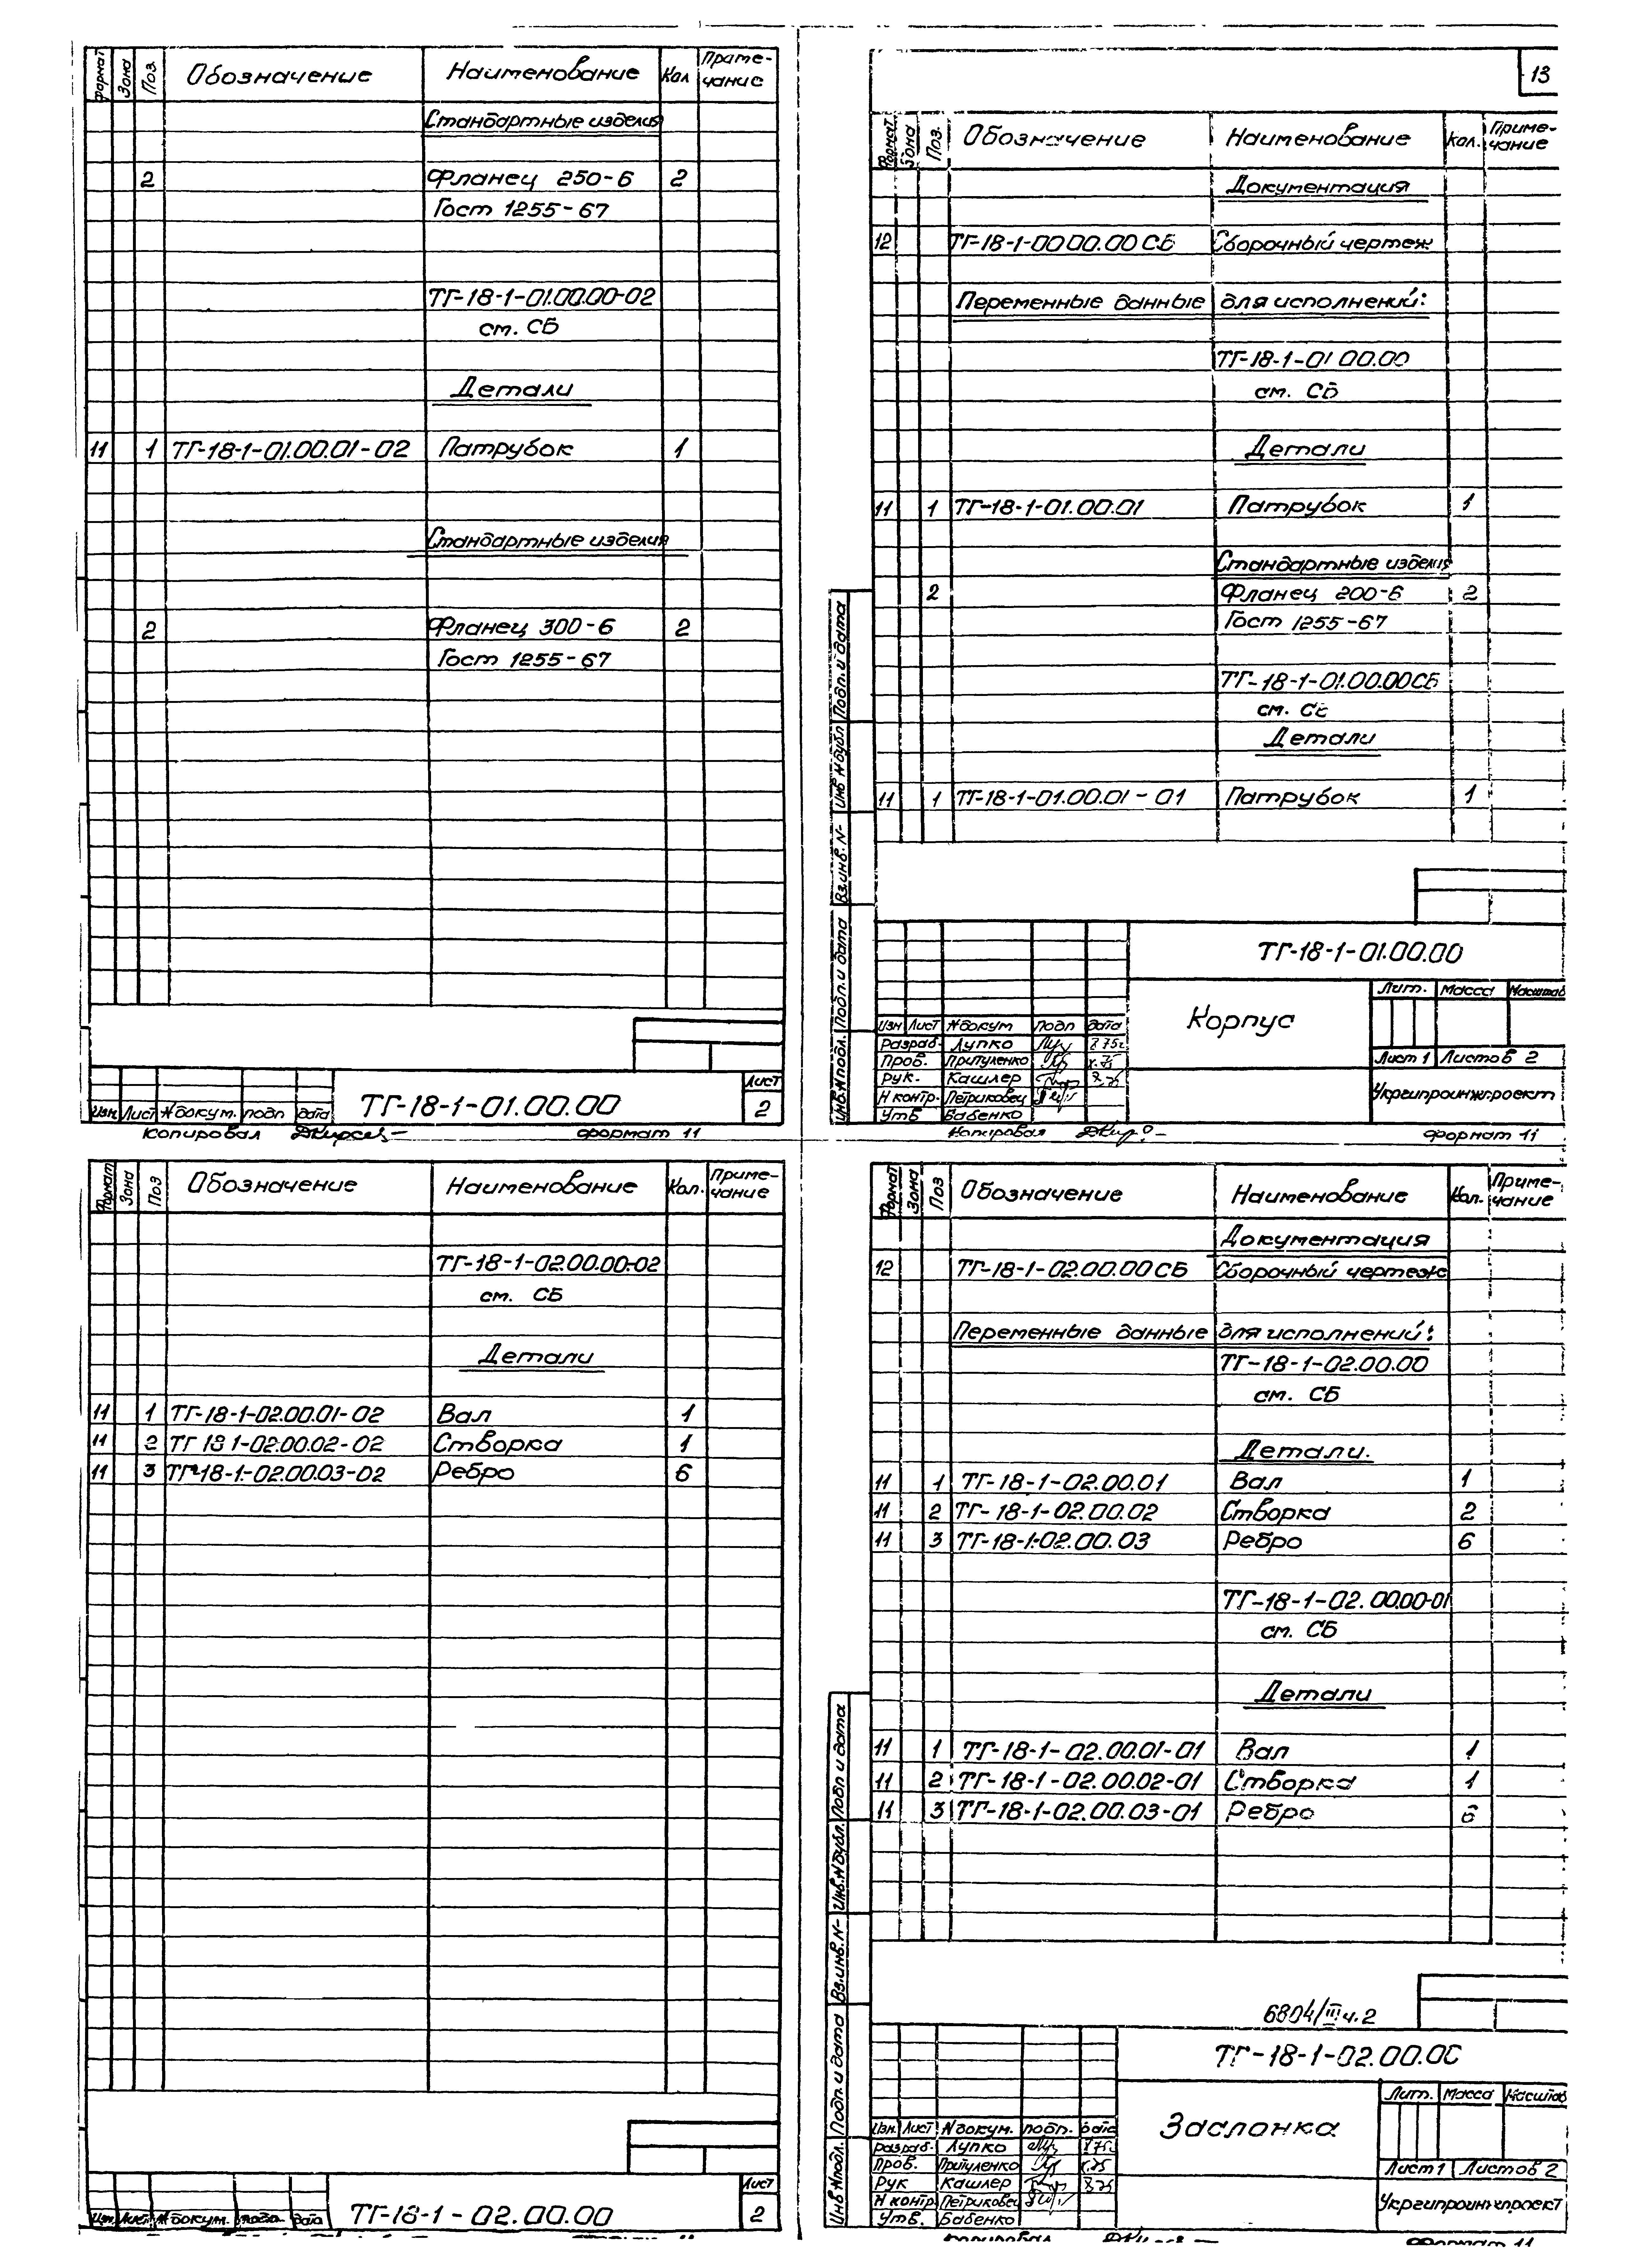 Формат Зона Поз. Обозначение Наименование Кол Приме-чание
Стандартные изделия
2 Фланец 250-6 2
Гост 1255-67
ТГ-18-1-01.00.00-02
см. СБ
Детали
11 1 ТГ-18-1-01.00.01-02 Патрубок 1
Стандартные изделия
2 Фланец 300-6 2
Гост 1255-67
Изм Лист № докум. подп дата ТГ-18-1-01.00.00 Лист 2
Копировал формат 11
13
Формат Зона Поз. Обозначение Наименование Кол. Приме-чание
Документация
12 ТГ-18-1-0000.00 СБ Сборочный чертеж
Переменные данные для исполнений:
ТГ-18-1-01 00.00
см. СБ
Детали
11 1 ТГ-18-1-01.00.01 Патрубок 1
Стандартные изделия
2 Фланец 200-6 2
Гост 1255-67
ТГ-18-1-01.00.00СБ
см. СБ
Детали
11 1 ТГ-18-1-01.00.01-01 Патрубок 1
Инв.№подл. Подп.и дата Вз.инв.№ Инв №дубл Подп.и дата
ТГ-18-1-01.00.00
Корпус
Лит. Масса Масштаб
Изм Лист № докум подп дата
Разраб. Лупко
Проб. Притуленко
Рук. Кашлер
Н контр. Петриковец
Утв Бабенко
Лист 1 Листов 2
Укргипроинжпроект
Копировал формат 11
Формат Зона Поз Обозначение Наименование Кол. Приме-чание
ТГ-18-1-02.00.00-02
см. СБ
Детали
11 1 ТГ-18-1-02.00.01-02 Вал 1
11 2 ТГ 18 1-02.00.02-02 Створка 1
11 3 ТГ-18-1-02.00.03-02 Ребро 6
Изм. Лист № докум. подп. дата ТГ-18-1-02.00.00 Лист 2
Формат Зона Поз Обозначение Наименование Кол. Приме-чание
Документация
12 ТГ-18-1-02.00.00 СБ Сборочный чертеж
Переменные данные для исполнений:
ТГ-18-1-02.00.00
см. СБ
Детали.
11 1 ТГ-18-1-02.00.01 Вал 1
11 2 ТГ-18-1-02.00.02 Створка 2
11 3 ТГ-18-1-02.00.03 Ребро 6
ТГ-18-1-02.00.00-01
см. СБ
Детали
11 1 ТГ-18-1-02.00.01-01 Вал 1
11 2 ТГ-18-1-02.00.02-01 Створка 1
11 3 ТГ-18-1-02.00.03-01 Ребро 6
Инв №подл. Подп. и дата Вз.инв.№ Инв.№дубл. Подп и дата
6804/III ч.2
ТГ-18-1-02.00.00
Заслонка
Лит. Масса Масштаб
Изм. Лист № докум. подп. дата
Разраб. Лупко
Проб. Притуленко
Рук Кашлер
Н контр. Петриковец
Утв. Бабенко
Лист 1 Листов 2
Укргипроинжпроект
Копировал Формат 11